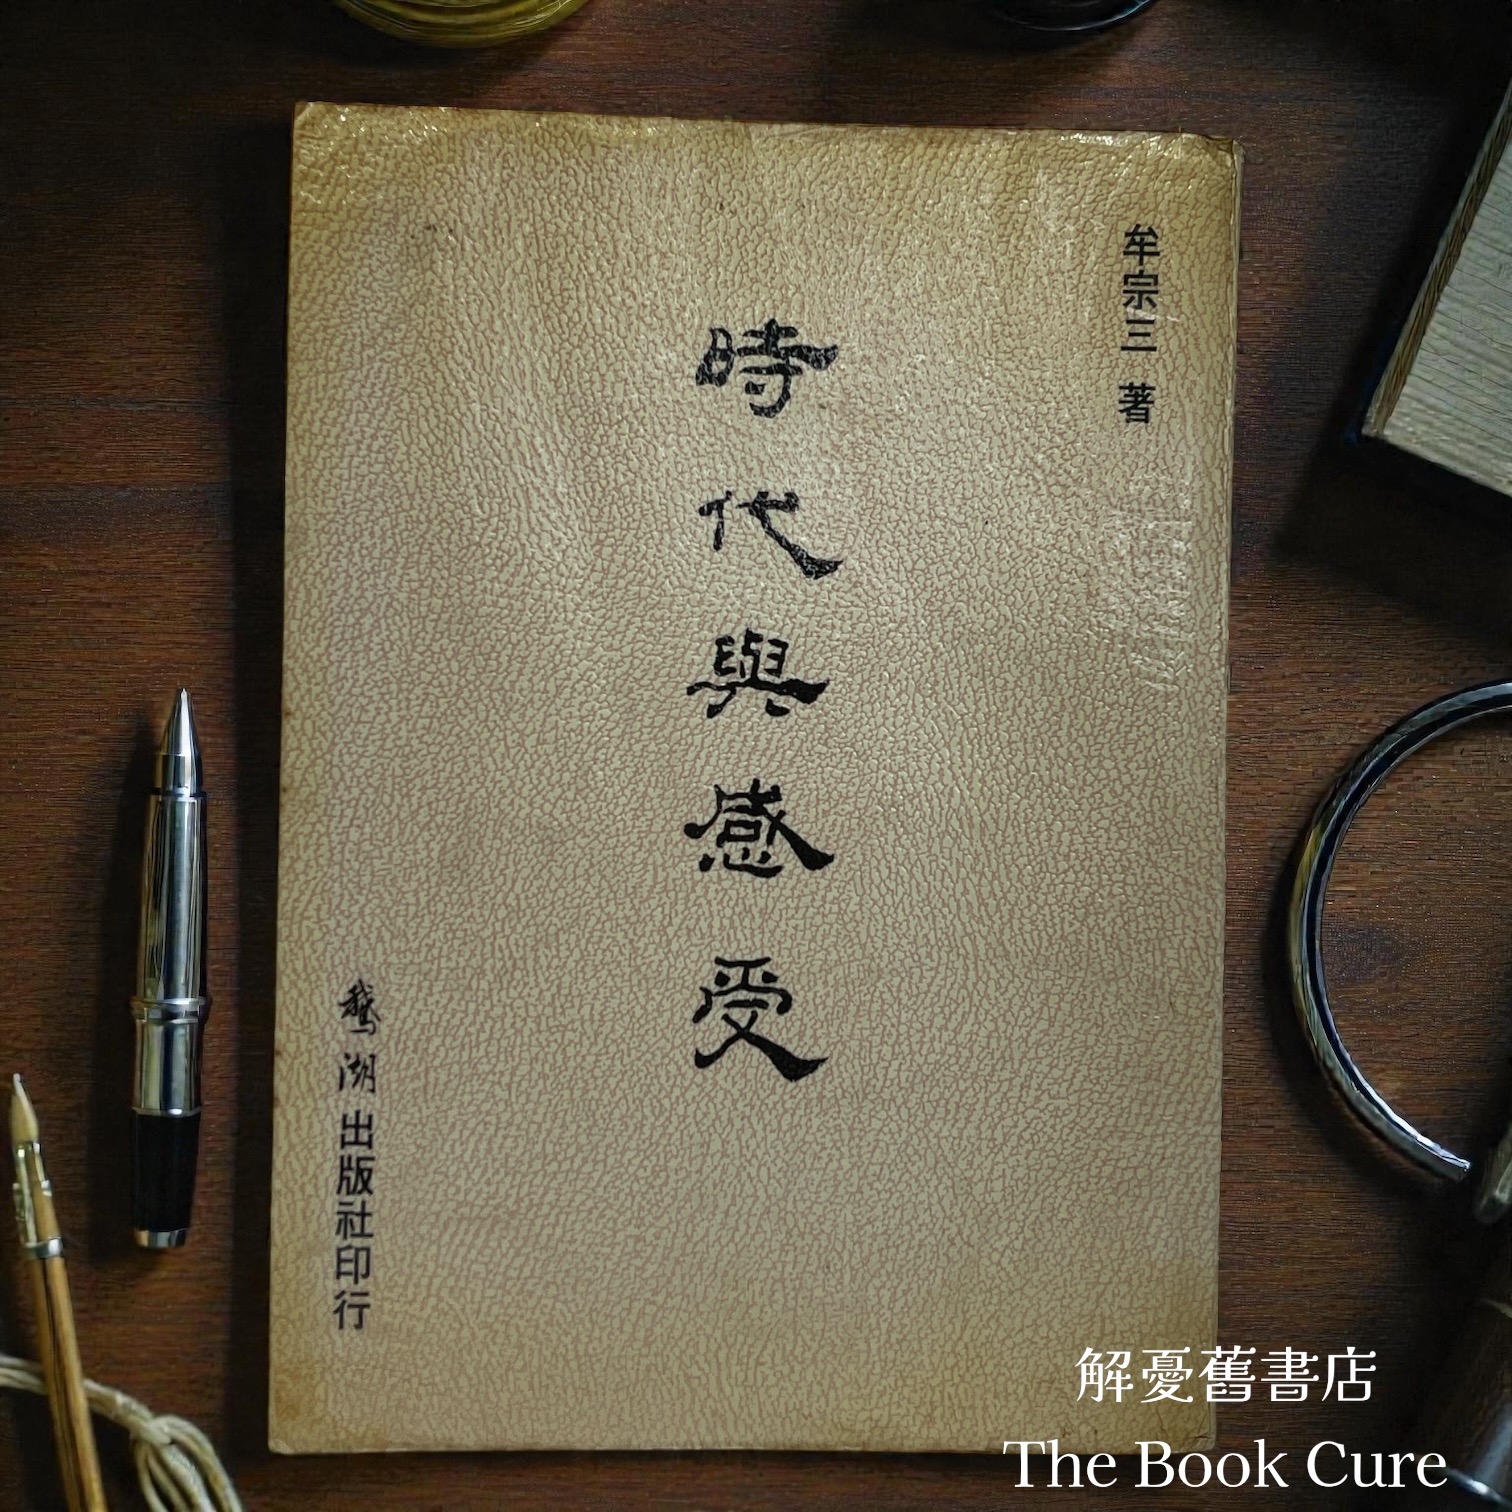 牟宗三 著
時代與感受
鵝湖出版社印行
解憂舊書店
The Book Cure